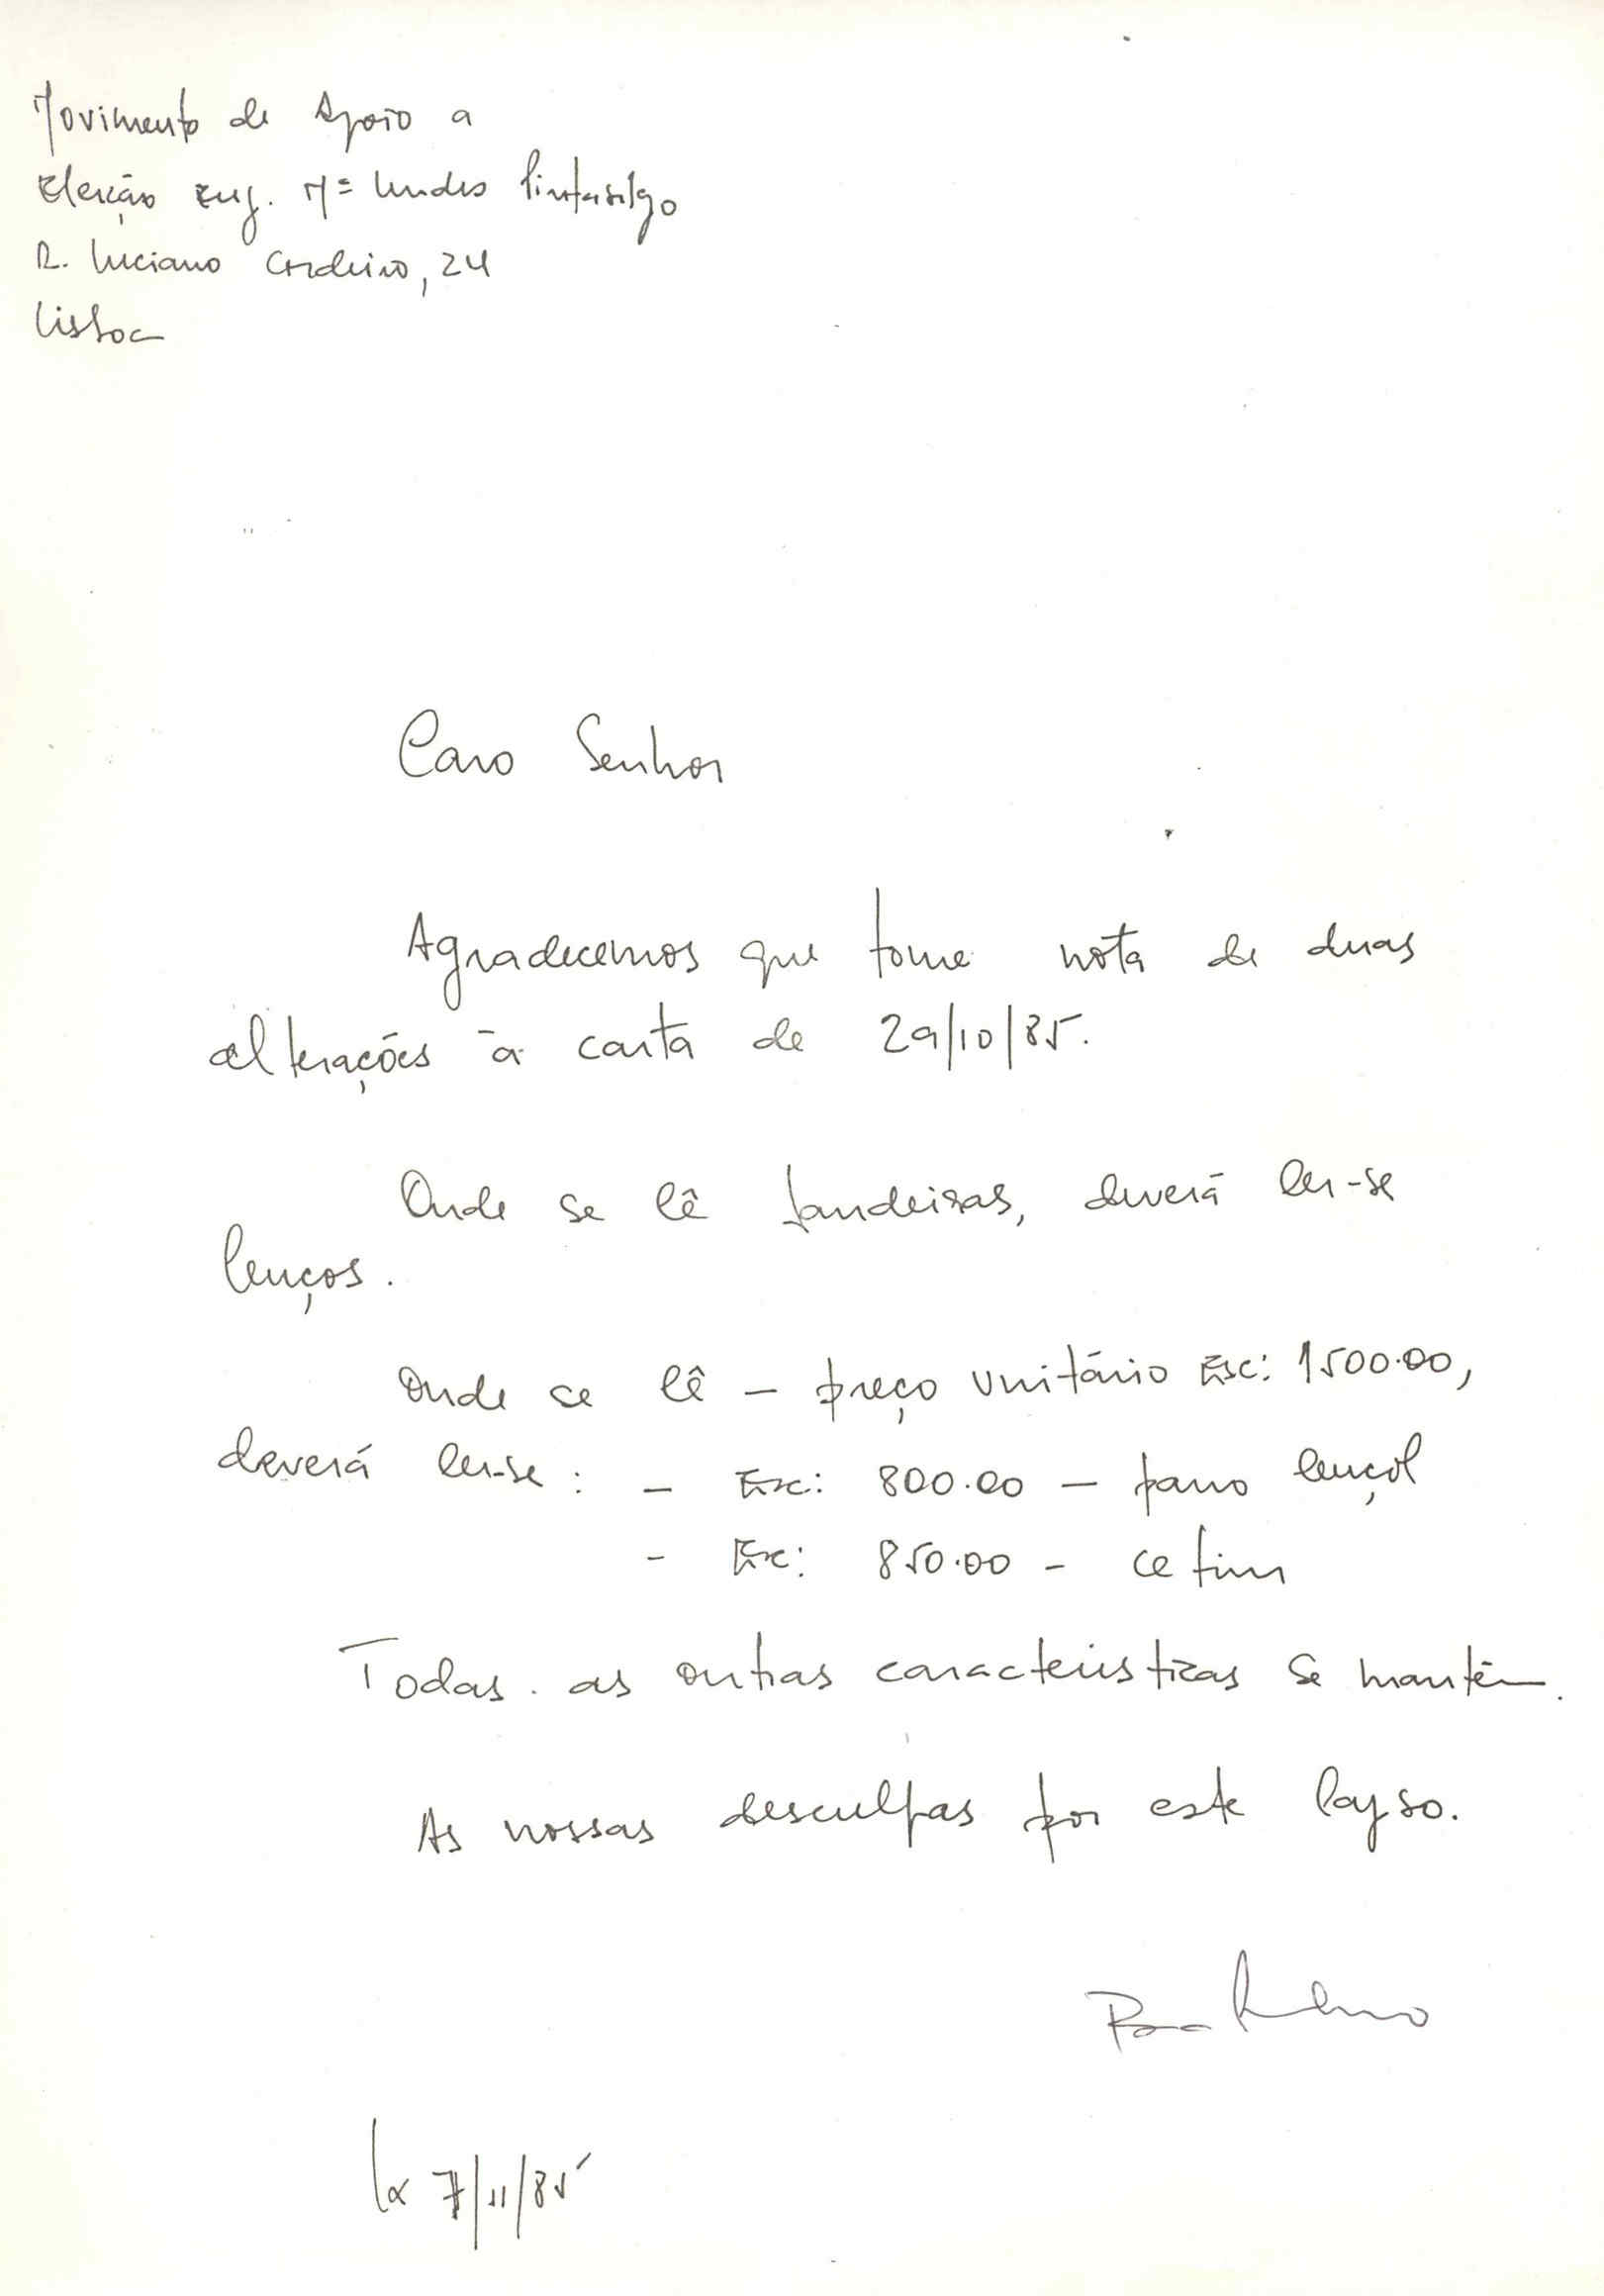 Movimento de Apoio a
Eleição Eng. Mª Lurdes Pintasilgo
R. Luciano Cordeiro, 24
Lisboa
Caro Senhor
Agradecemos que tome nota de duas
alterações à carta de 29/10/85.
Onde se lê bandeiras, deverá ler-se
lenços.
Onde se lê - preço unitário Esc: 1500.00,
deverá ler-se: - Esc: 800.00 - pano lençol
- Esc: 850.00 - cetim
Todas as outras características se mantêm.
As nossas desculpas por este lapso.
Lx 7/11/85